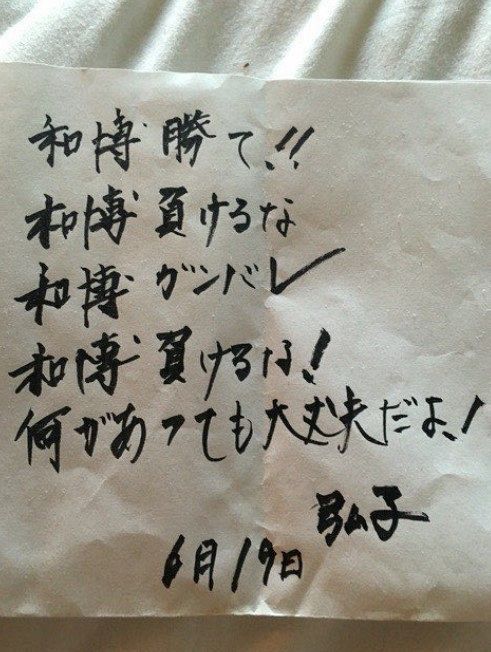 和博 勝て!!
和博 負けるな
和博 ガンバレ
和博 負けるな!
何があっても大丈夫だよ!
弘子
6月19日